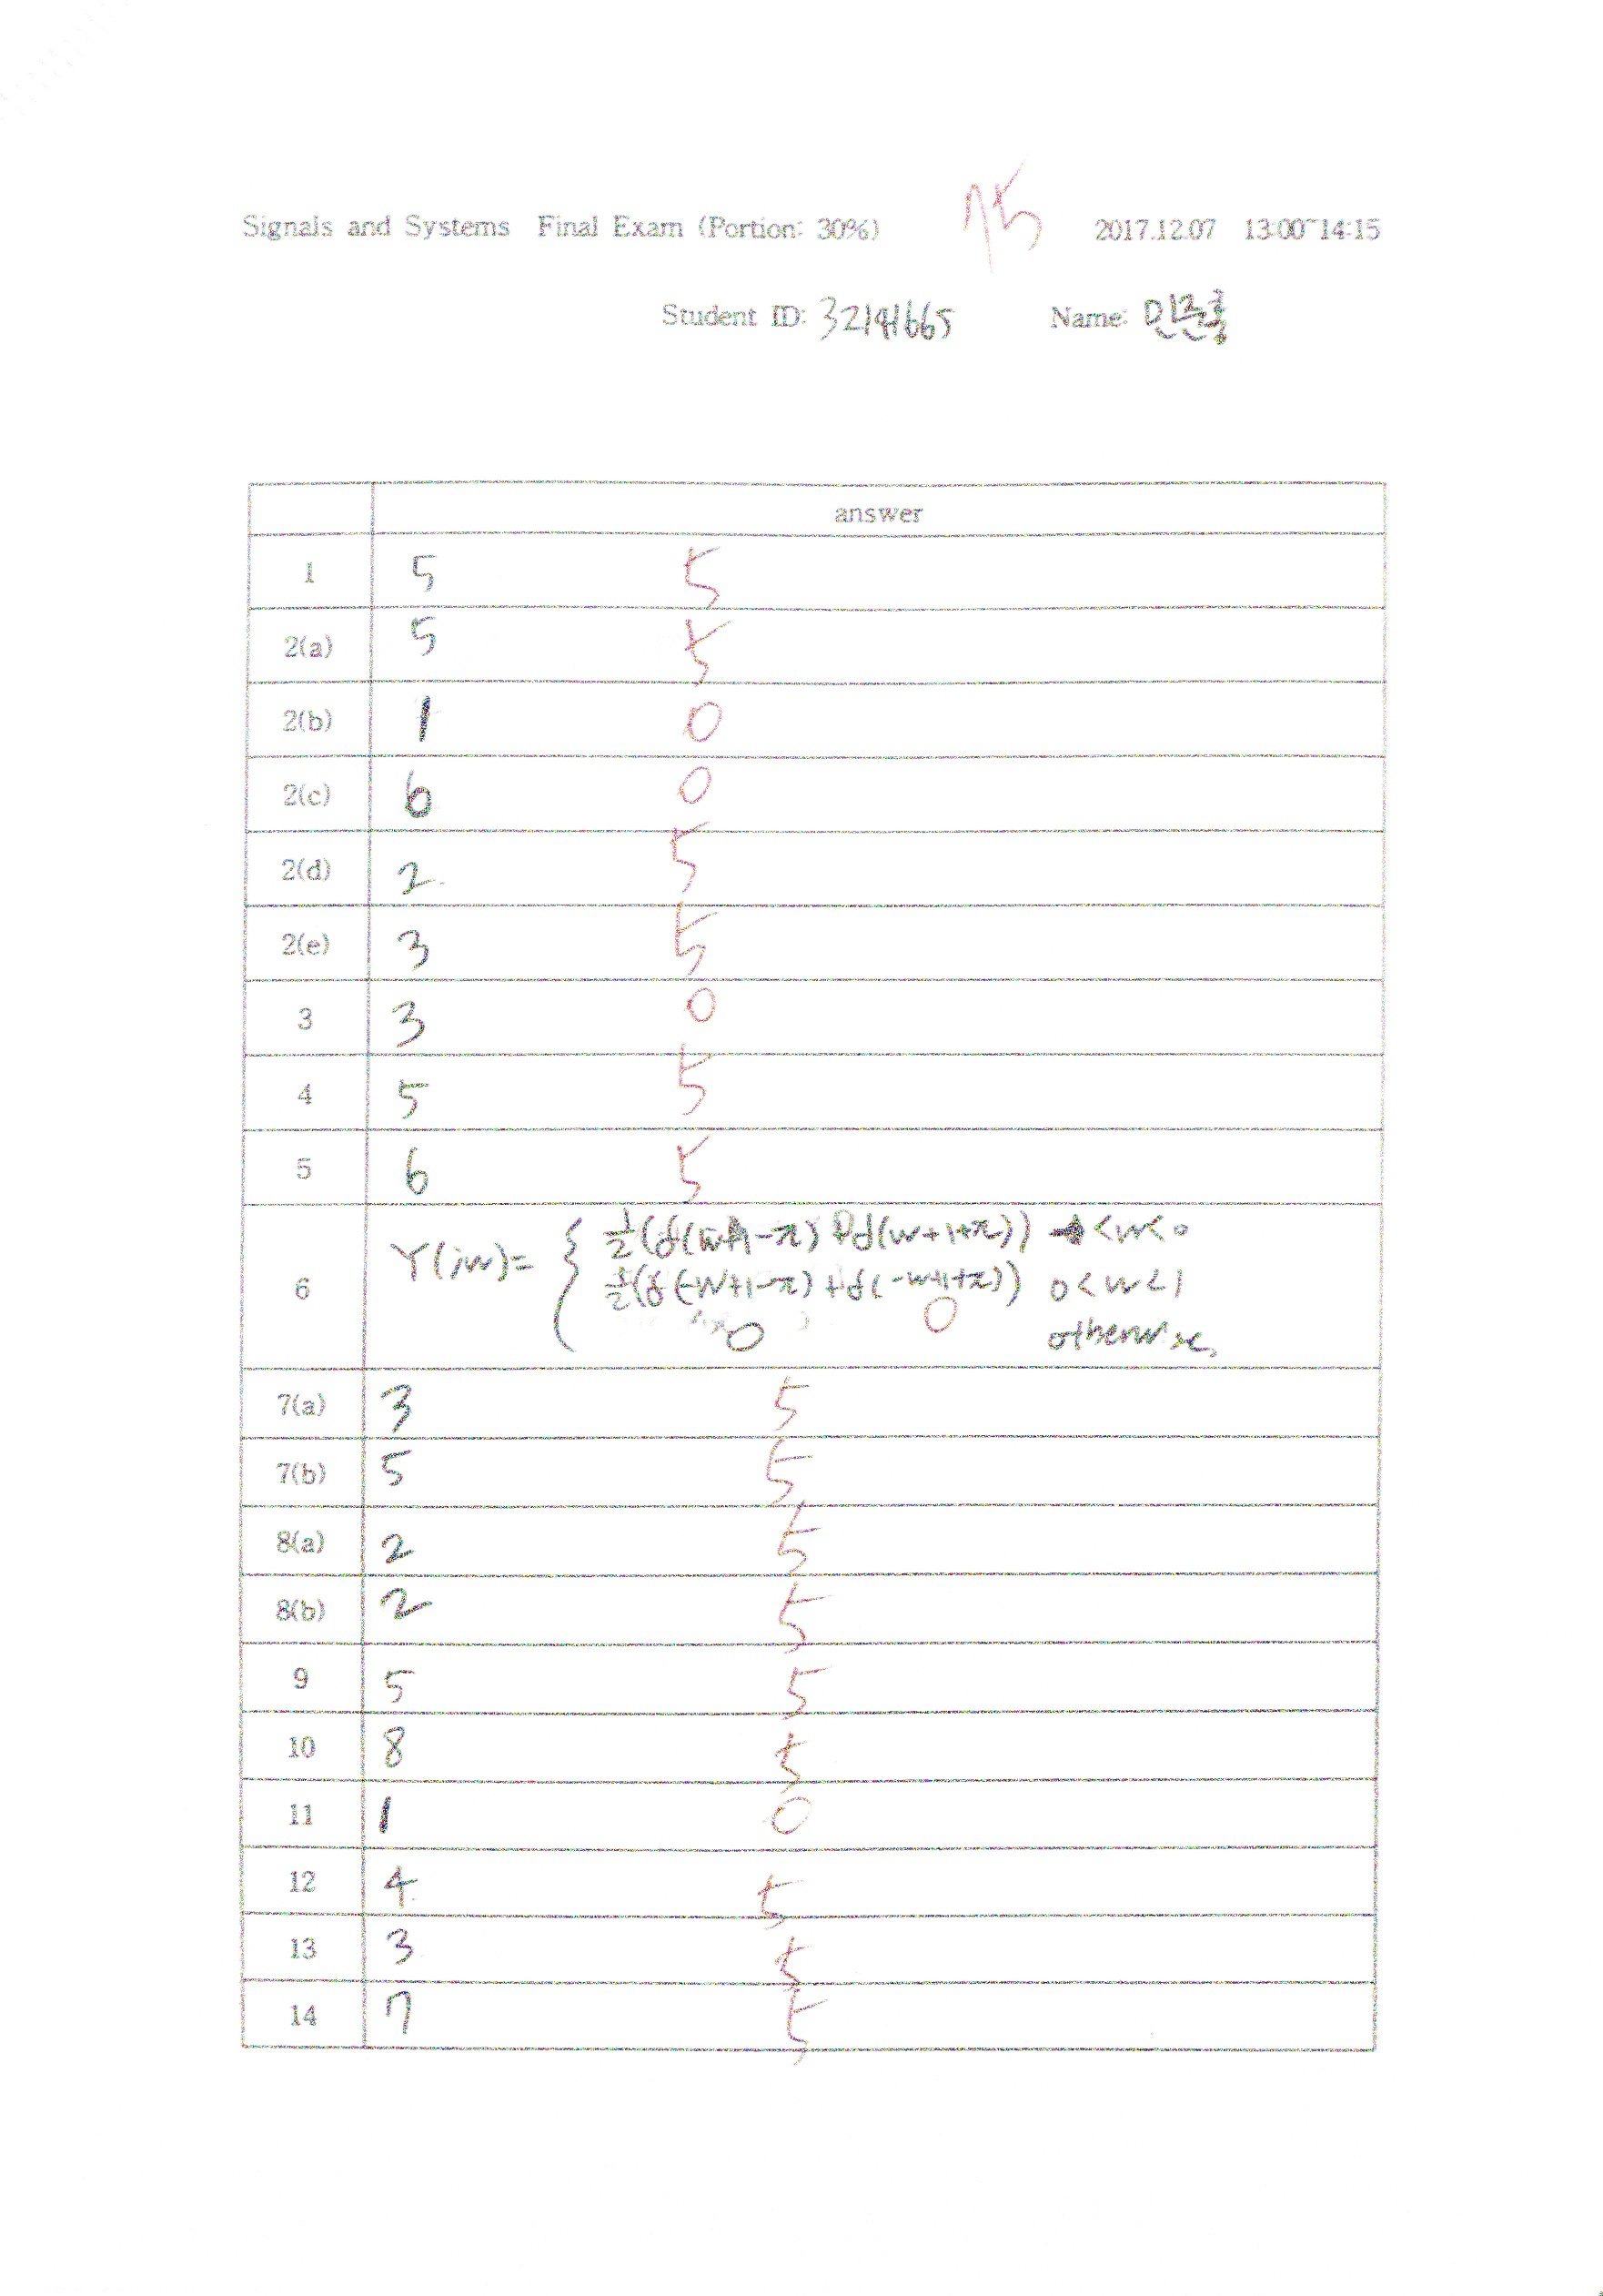 Signals and Systems Final Exam (Portion: 30%) 75 2017.12.07 13:00~14:15
Student ID: 32141665 Name:
answer
1 5 5
2(a) 5 5
2(b) 1 0
2(c) 6 0
2(d) 2 5
2(e) 3 5
3 3 0
4 5 5
5 6 5
½(δ(w+1-π)+δ(w+1+π)) -1<w<0
6 Y(jw)= { ½(δ(-w+1-π)+δ(-w+1+π)) 0<w<1 0
0 otherwise
7(a) 3 5
7(b) 5 5
8(a) 2 5
8(b) 2 5
9 5 5
10 8 5
11 1 0
12 4 5
13 3 5
14 7 5